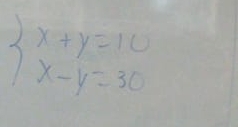 x+y=10
x-y=30